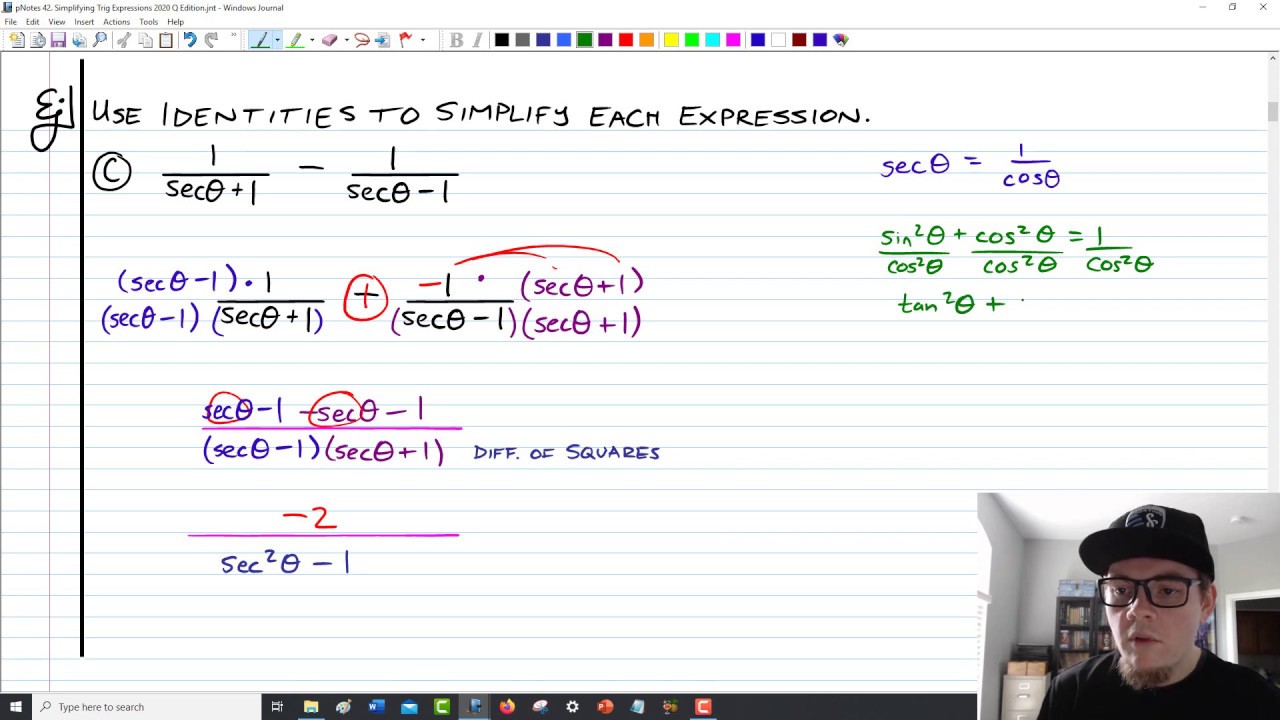 pNotes 42. Simplifying Trig Expressions 2020 Q Edition.jnt - Windows Journal
File Edit View Insert Actions Tools Help
B I
Ej USE IDENTITIES TO SIMPLIFY EACH EXPRESSION.
Ⓒ 1/(secθ+1) − 1/(secθ−1)
secθ = 1/cosθ
sin²θ/cos²θ + cos²θ/cos²θ = 1/cos²θ
tan²θ +
(secθ−1)•1/(secθ−1)(secθ+1) + −1•(secθ+1)/(secθ−1)(secθ+1)
secθ−1 −secθ−1
(secθ−1)(secθ+1) DIFF. OF SQUARES
−2
sec²θ−1
Type here to search